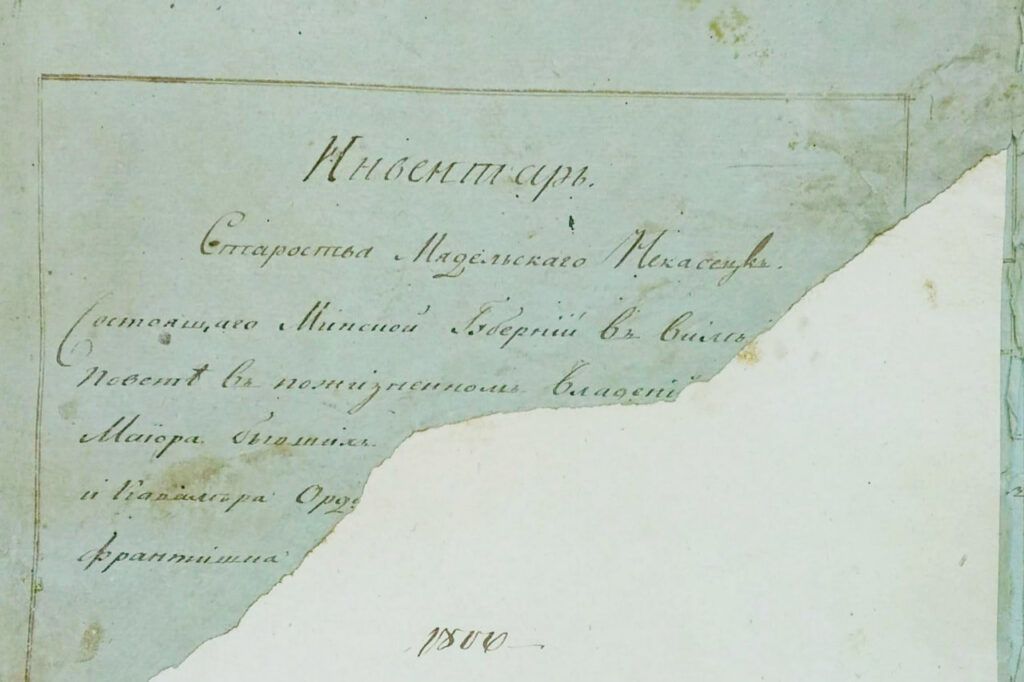 Инвентарь.
Староства Мядельского Некасецкъ.
Состоящаго Минской Губерніи въ Виле
Поветѣ въ пожизненномъ Владеніи
Маіора бывшихъ
и Кавалера Орде
Франтишка
1806